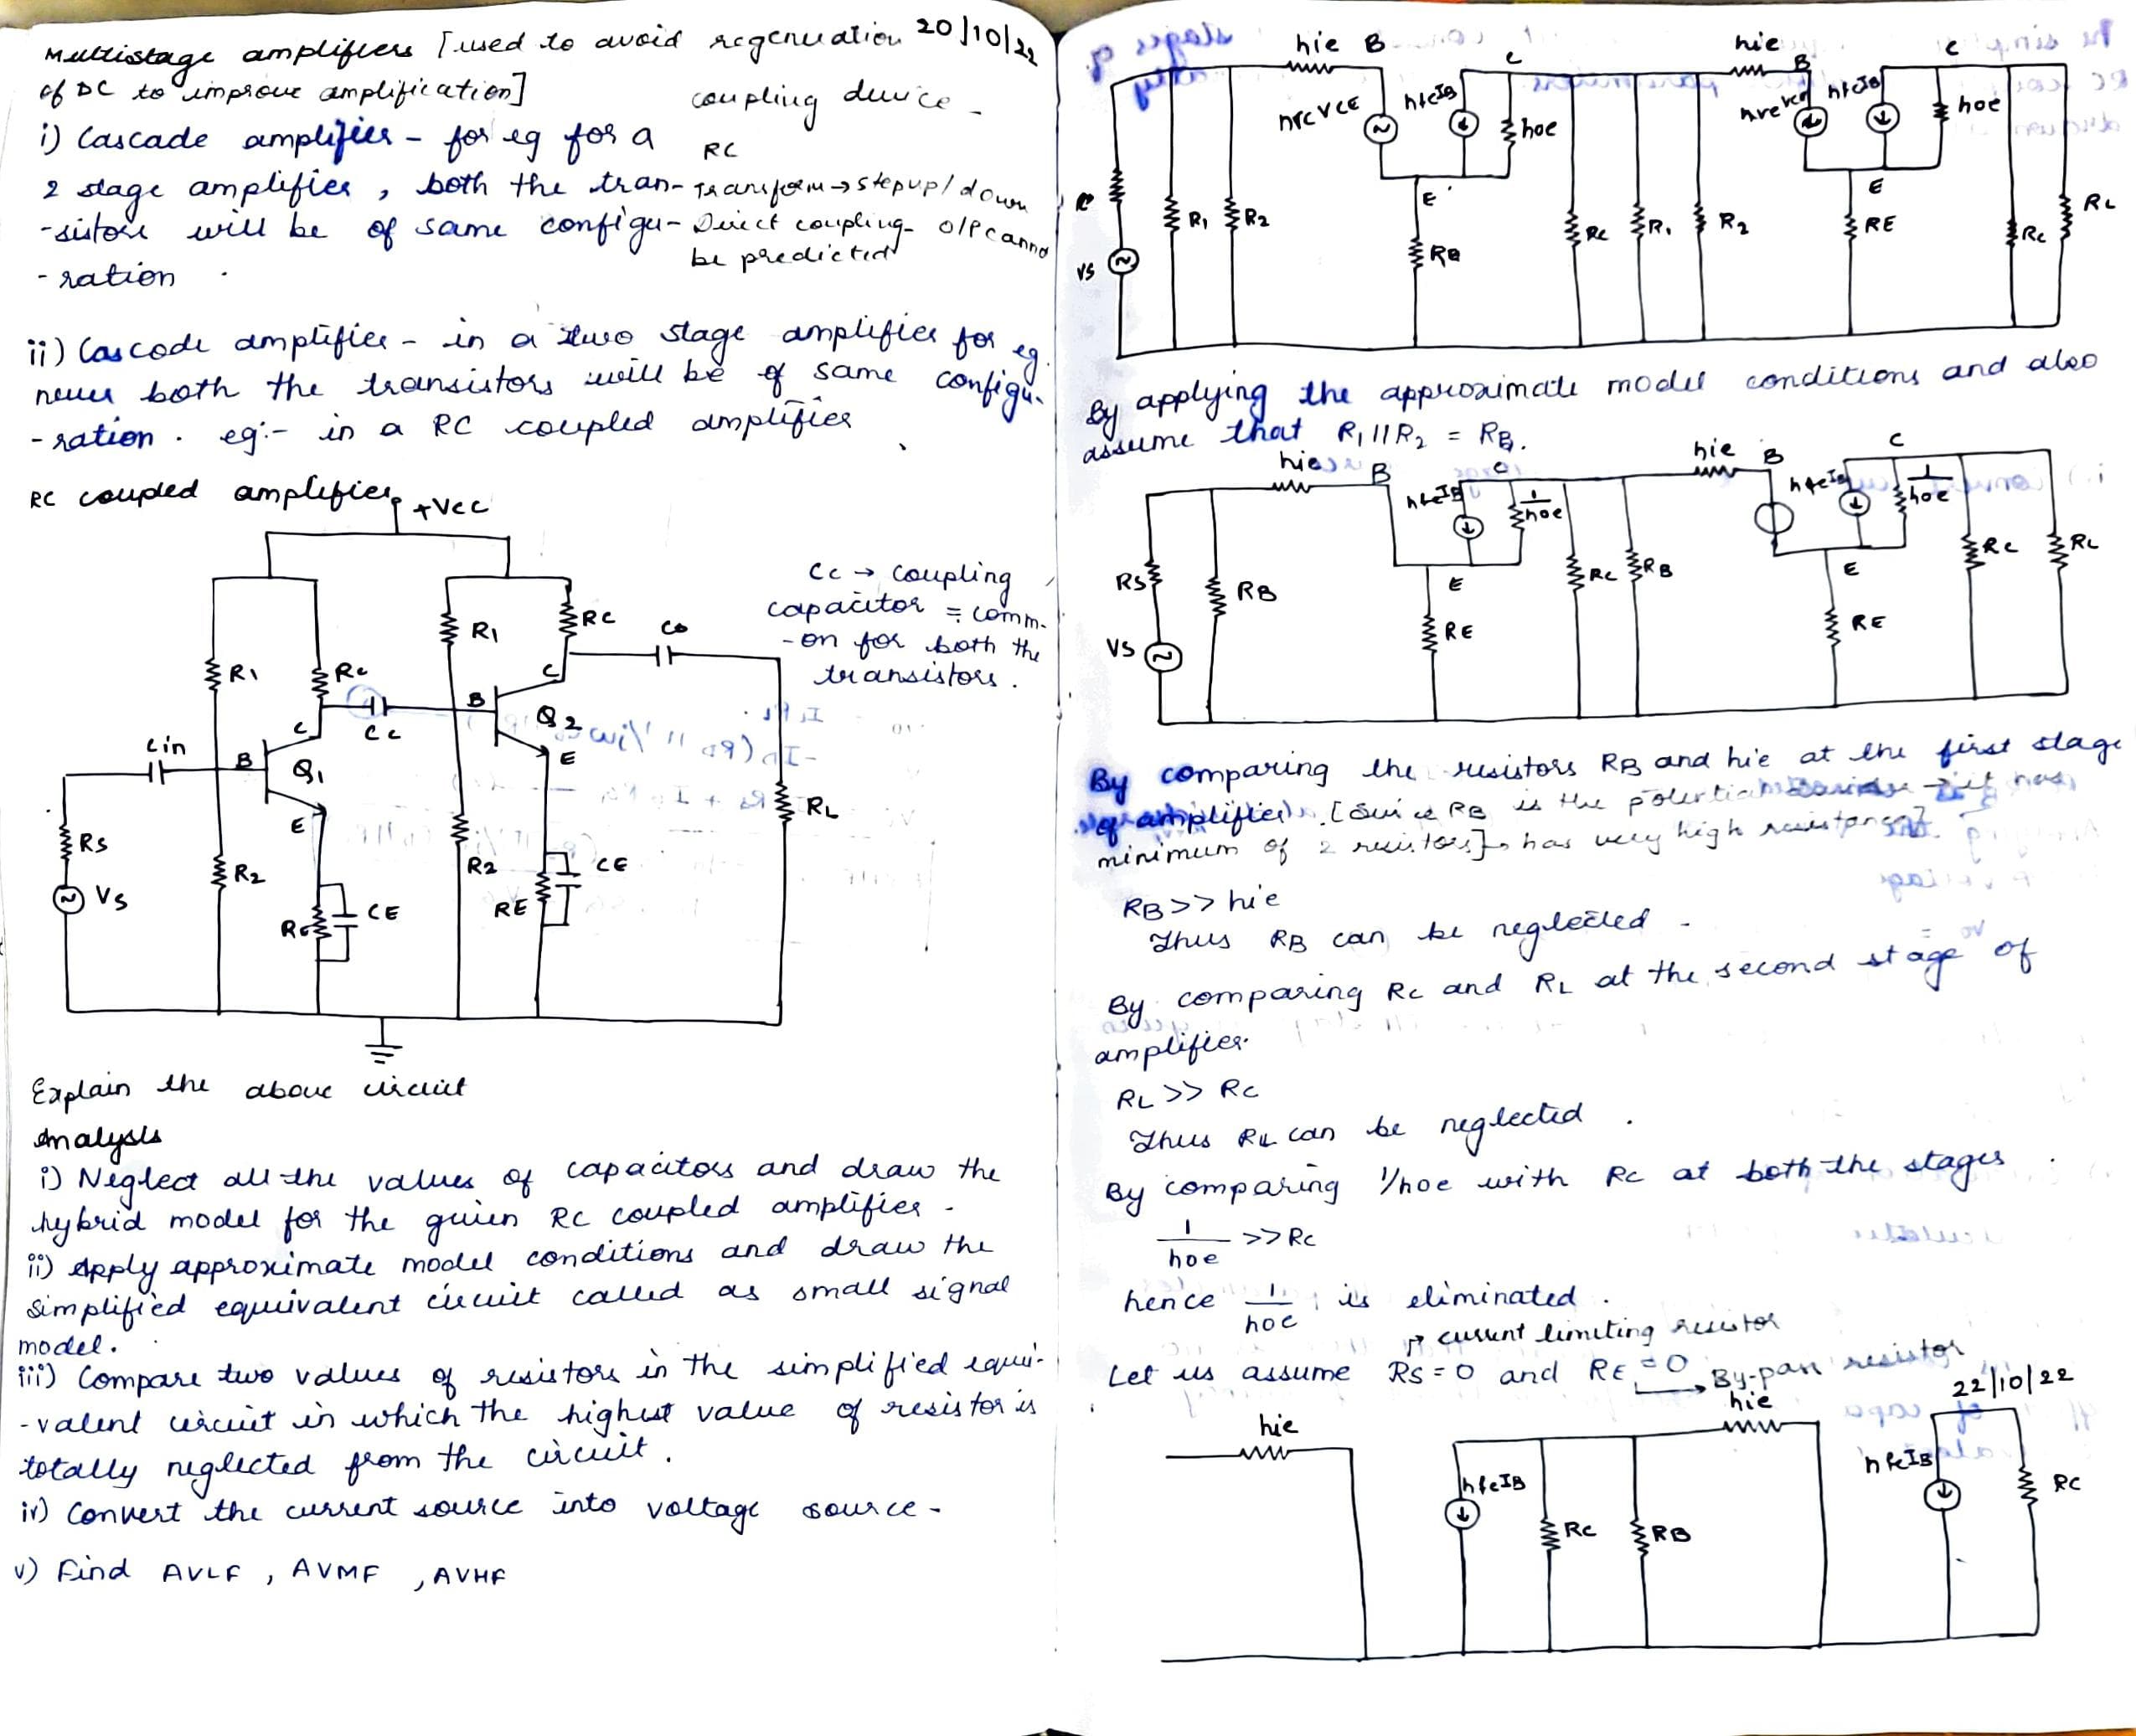 Multistage amplifiers [used to avoid regeneration 20/10/22
of DC to improve amplification]
coupling device -
i) Cascade amplifier - for eg for a
RC
2 stage amplifier, both the tran-
Transform → stepup/down
-sistors will be of same configu-
Direct coupling - O/P canno
be predicted
-ration.
ii) Cascode amplifier - in a two stage amplifier for eg.
never both the transistors will be of same configu-
-ration. eg:- in a RC coupled amplifier
RC coupled amplifier
+Vcc
R1
Rc
Cc
R1
RC
Co
Cc → coupling
capacitor = comm-
-on for both the
transistors.
Cin
B
C
Q1
E
B
C
Q2
E
Rs
Vs
R2
RE
CE
R2
RE
CE
RL
Explain the above circuit
Analysis
i) Neglect all the values of capacitors and draw the
hybrid model for the given RC coupled amplifier.
ii) Apply approximate model conditions and draw the
simplified equivalent circuit called as small signal
model.
iii) Compare two values of resistors in the simplified equi-
-valent circuit in which the highest value of resistor is
totally neglected from the circuit.
iv) Convert the current source into voltage source -
v) Find AVLF, AVMF, AVHF
hie B
hreVCE
hfeIB
C
hoe
hie
B
hreVCE
hfeIB
C
hoe
VS
R1
R2
E
RE
Rc
R1
R2
E
RE
Rc
RL
By applying the approximate model conditions and also
assume that R1 || R2 = RB.
hie
B
hfeIB
C
1/hoe
hie
B
hfeIB
C
1/hoe
RS
VS
RB
E
RE
Rc
RB
E
RE
Rc
RL
By comparing the resistors RB and hie at the first stage
of amplifier. [Since RB is the potential it has
minimum of 2 resistors] has very high resistance]
RB >> hie
Thus RB can be neglected -
By comparing Rc and RL at the second stage of
amplifier.
RL >> Rc
Thus RL can be neglected.
By comparing 1/hoe with Rc at both the stages.
1/hoe >> Rc
hence 1/hoe is eliminated.
→ current limiting resistor
Let us assume RS = 0 and RE = 0 → By-pass resistor
22/10/22
hie
hfeIB
RC
RB
hie
hfeIB
RC